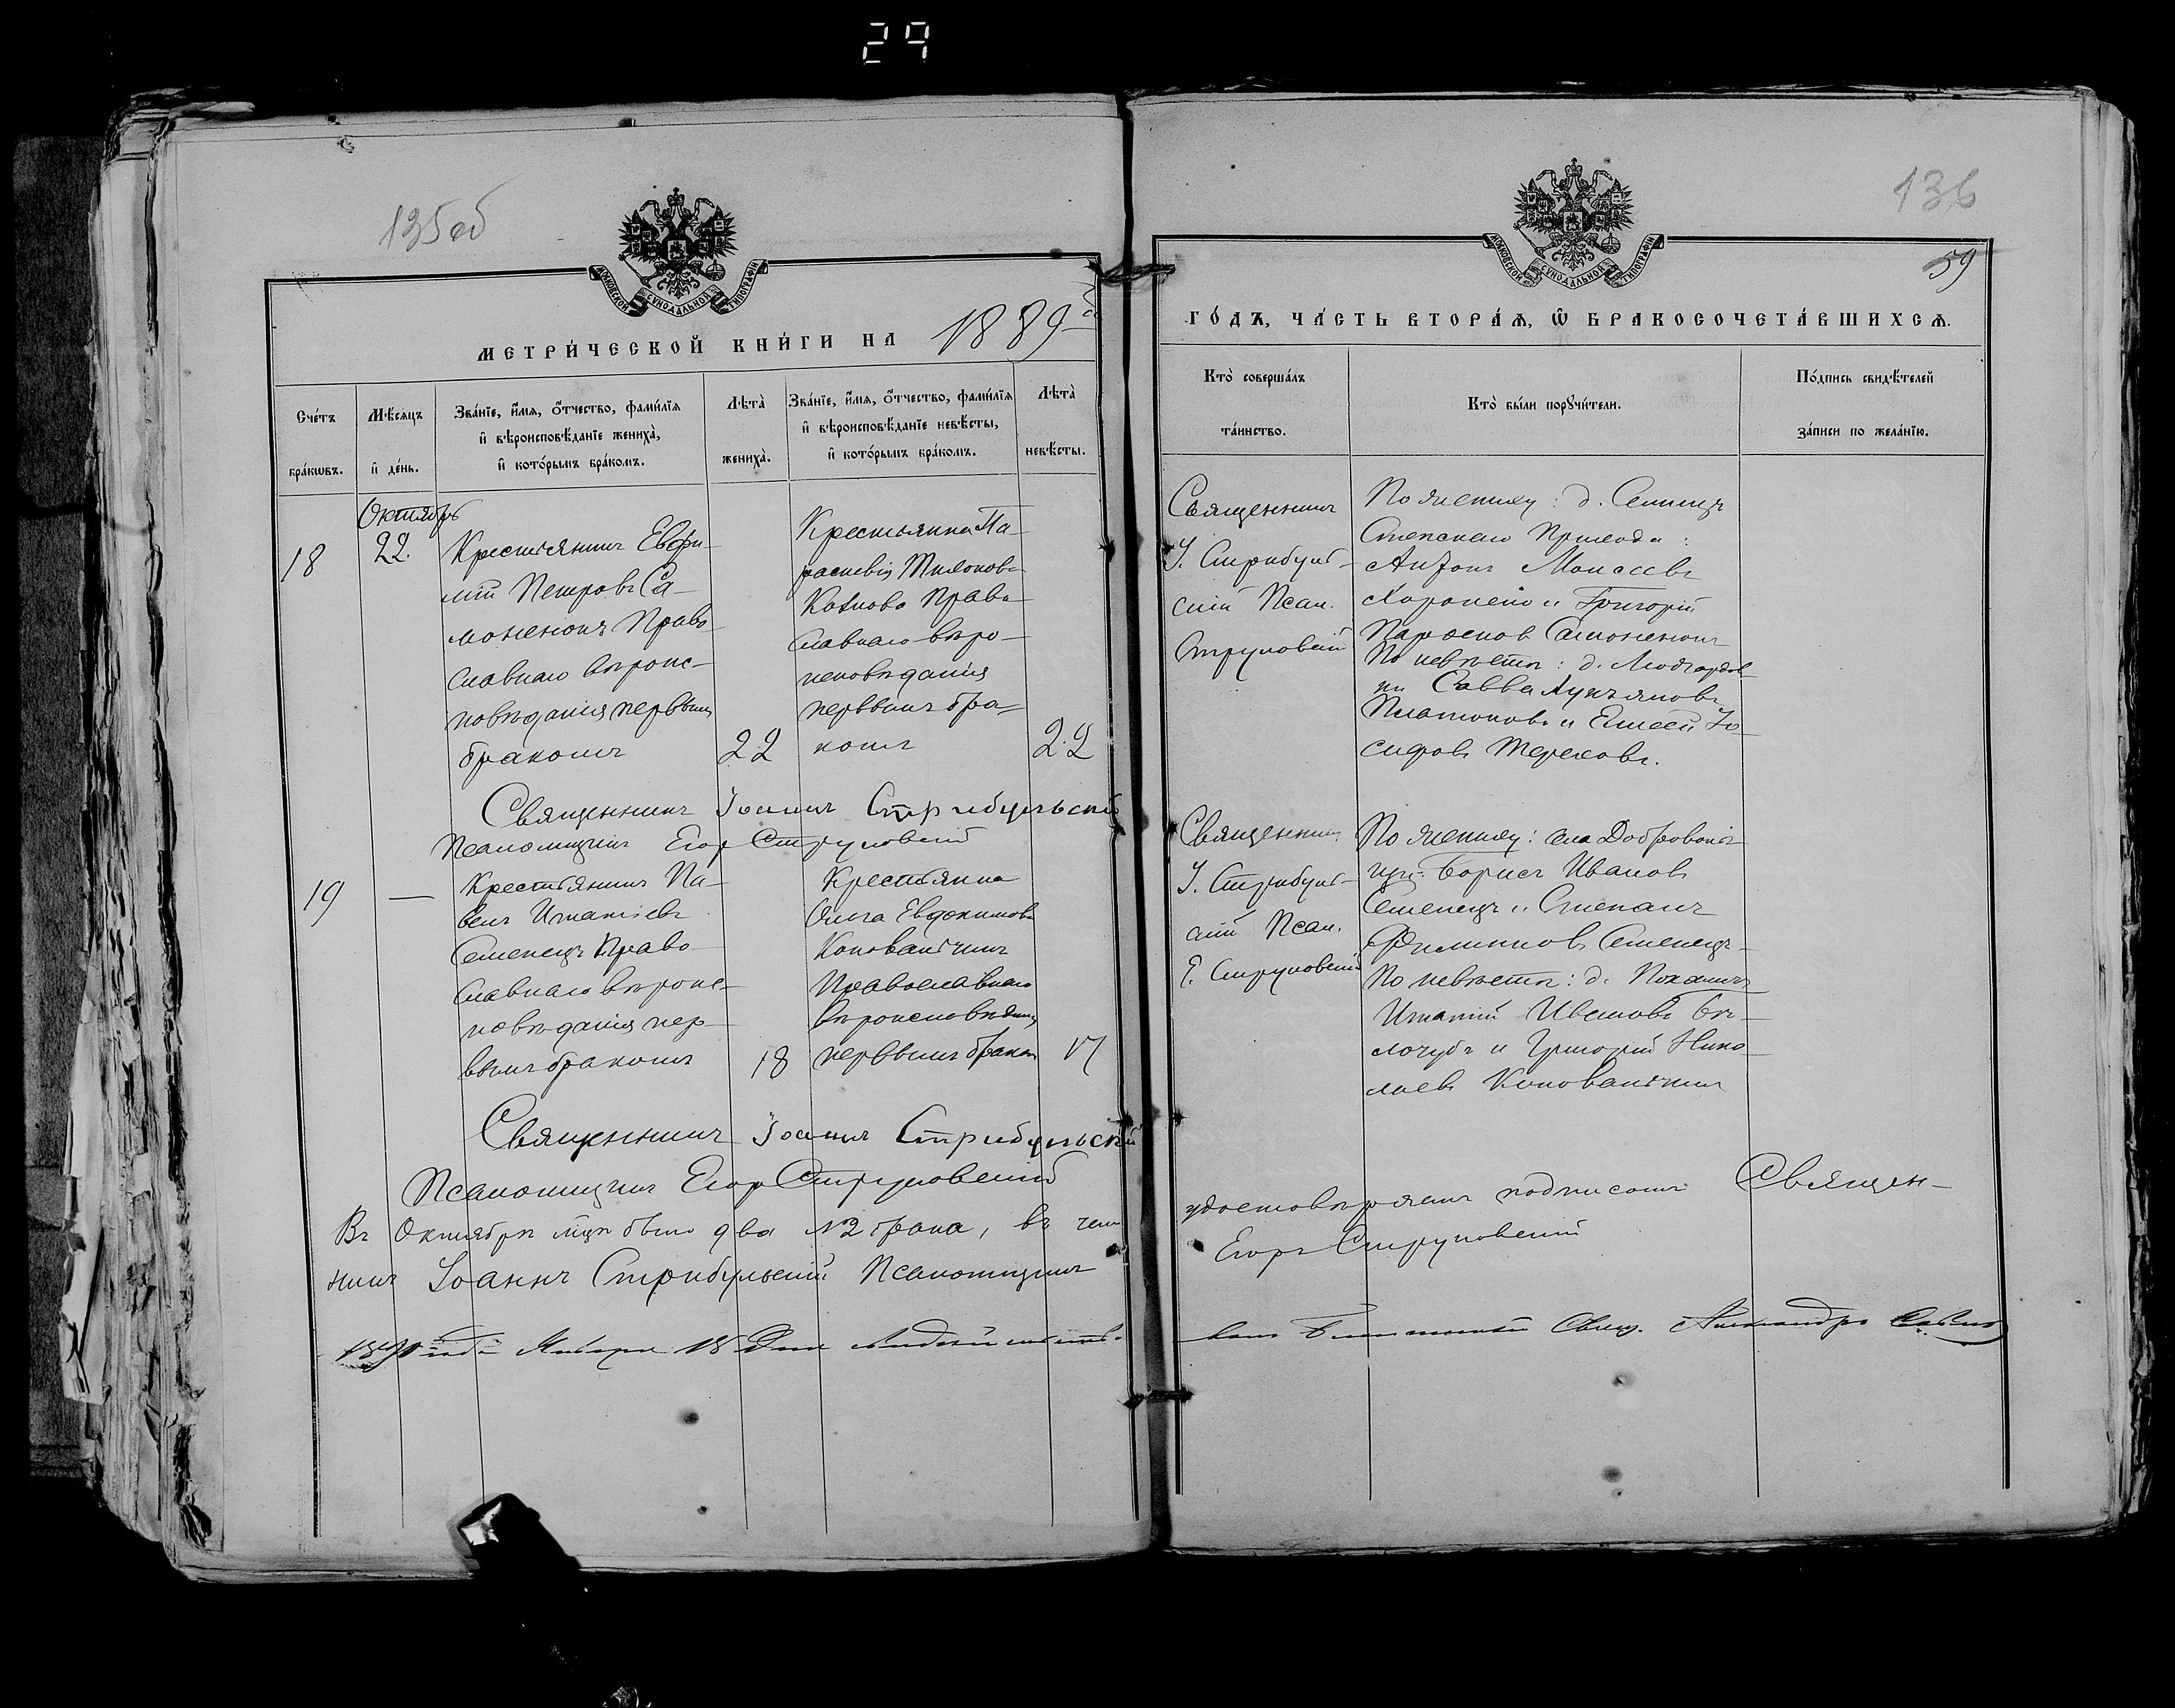 29
135об
МОСКОВСКОЙ СѴНОДАЛЬНОЙ ТИПОГРАФІИ
МЕТРИ́ЧЕСКОЙ КНИ́ГИ НА 1889й
Сче́тъ бра́кѡвъ.
Мѣ́сяцъ и҆ де́нь.
Зва́нїе, и҆́мѧ, ѻ҆́тчество, фами́лїѧ
и҆ вѣроисповѣ́данїе жениха̀,
и҆ кото́рымъ бра́комъ.
Лѣта̀ жениха̀.
Зва́нїе, и҆́мѧ, ѻ҆́тчество, фами́лїѧ
и҆ вѣроисповѣ́данїе невѣ́сты,
и҆ кото́рымъ бра́комъ.
Лѣта̀ невѣ́сты.
Октябрь
18
22.
Крестьянинъ Евфи-
мій Петровъ Са-
моненокъ Право-
славнаго вѣроис-
повѣданія первымъ
бракомъ
22
Крестьянка Па-
раскевія
Право-
славнаго вѣро-
исповѣданія
первымъ бра-
комъ
22
Священникъ Іоаннъ Стрибульскій
Псаломщикъ Егор Струковскій
19
—
Крестьянинъ Па-
велъ Игнатіевъ
Семенецъ Право-
славнаго вѣроис-
повѣданія пер-
вымъ бракомъ
18
Крестьянка
Ольга Евдокимова
Коновальчикъ
Православнаго
вѣроисповѣданія
первымъ браком
17
Священникъ Іоаннъ Стрибульскій
Псаломщикъ Егор Струковскій
Въ Октябрѣ мцѣ было два №2 брака, въ чем
никъ Іоаннъ Стрибульскій Псаломщикъ
1890 года Января 18 дня
136
59
МОСКОВСКОЙ СѴНОДАЛЬНОЙ ТИПОГРАФІИ
ГО́ДЪ, ЧА́СТЬ ВТОРА́Ѧ, Ѽ БРАКОСОЧЕТА́ВШИХСѦ.
Кто̀ соверша́лъ
та́инство.
Кто̀ бы́ли порꙋчи́тели.
По́дпись свидѣ́телей
за́писи по жела́нїю.
Священникъ
І. Стрибуль-
скій Псал.
Струковскій
По жениху: д. Селищъ
Степскаго Прихода:
Антонъ Моисеевъ
и Григорій
Самоненокъ
По невѣстѣ: д.
Савва Лукьяновъ
Платоновъ и Елисей Іо-
сифовъ Тереховъ.
Священникъ
І. Стрибуль-
скій Псал.
Е. Струковскій
По жениху: села
Борисъ Ивановъ
Семенецъ и Степанъ
Филиповъ Семенецъ
По невѣстѣ: д.
Игнатій Ивановъ Бѣ-
лочубъ и Григорій Нико-
лаевъ Коновальчикъ
удостовѣряемъ подписомъ Священ-
Егоръ Струковскій
Свящ. Александръ